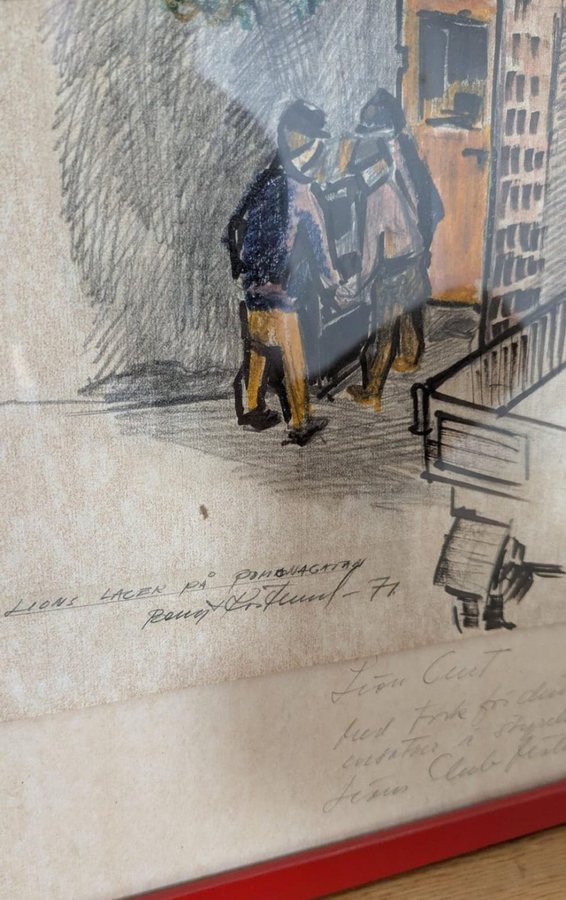 LIONS LAGER PÅ POMONAGATAN
Bengt - 71.
Lion Curt
Med tack för din
insatser i styrel
Lions Club